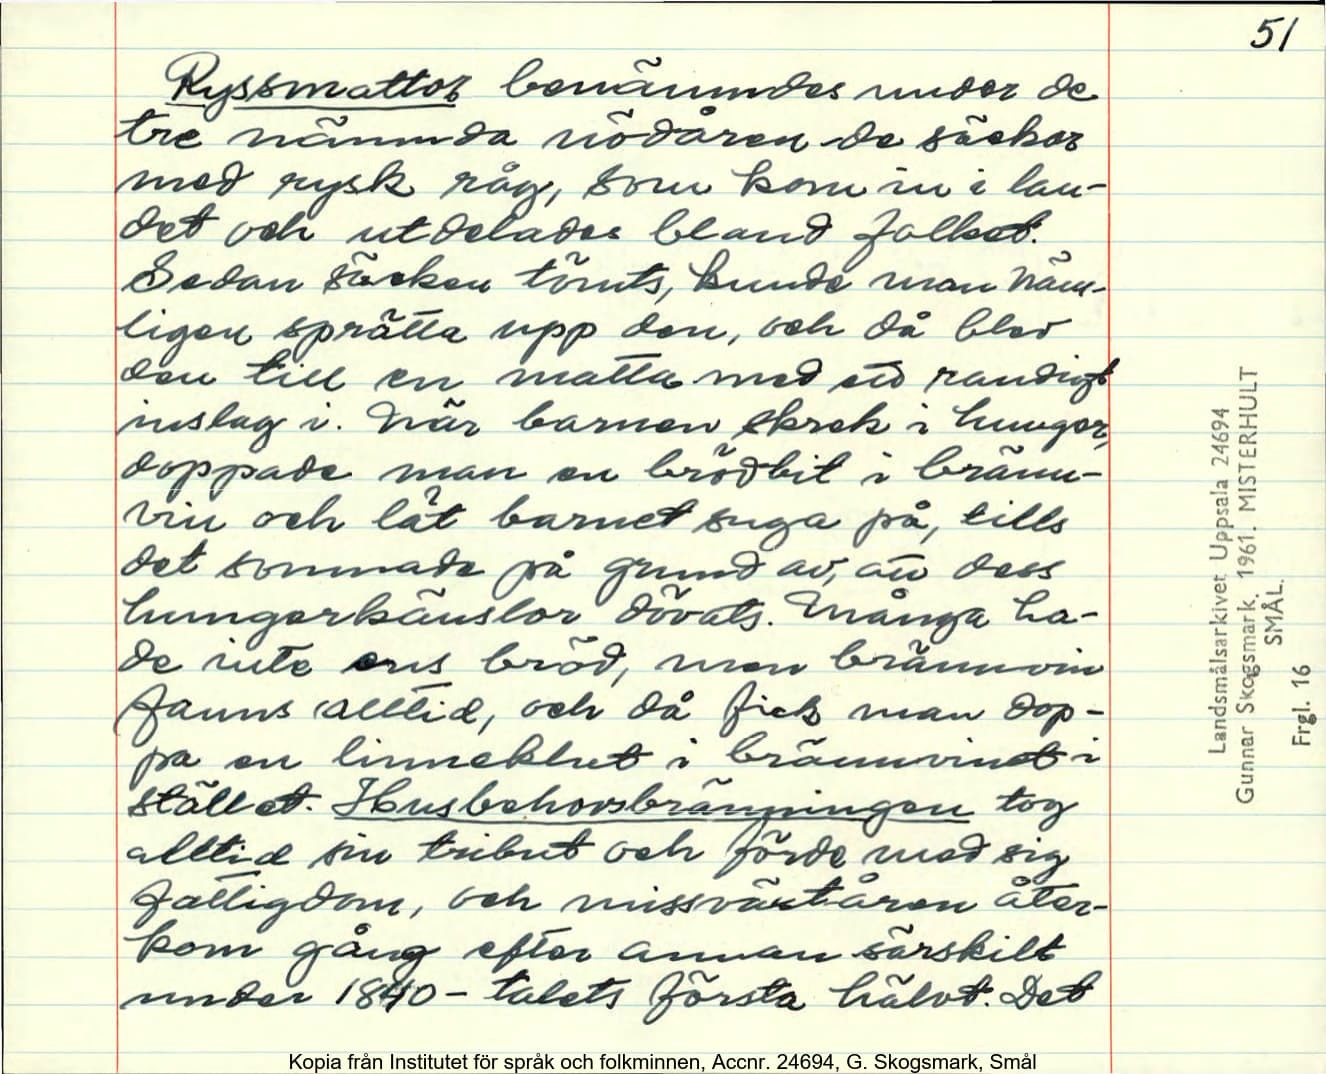 51
Ryssmattor benämndes under de
tre nämnda nödåren de säckar
med rysk råg, som kom in i lan-
det och utdelades bland folket.
Sedan säcken tömts, kunde man näm-
ligen sprätta upp den, och då blev
den till en matta med ett randigt
inslag i. När barnen skrek i hunger,
doppade man en brödbit i bränn-
vin och lät barnet suga på, tills
det somnade på grund av, att dess
hungerkänslor dövats. Många ha-
de inte ens bröd, men brännvin
fanns alltid, och då fick man dop-
pa en linneklut i brännvinet i
stället. Husbehovsbränningen tog
alltid sin tribut och förde med sig
fattigdom, och missväxtåren åter-
kom gång efter annan särskilt
under 1840-talets första hälvt. Det
Landsmålsarkivet Uppsala 24694
Gunnar Skogsmark. 1961. MISTERHULT
SMÅL.
Frgl. 16
Kopia från Institutet för språk och folkminnen, Accnr. 24694, G. Skogsmark, Smål